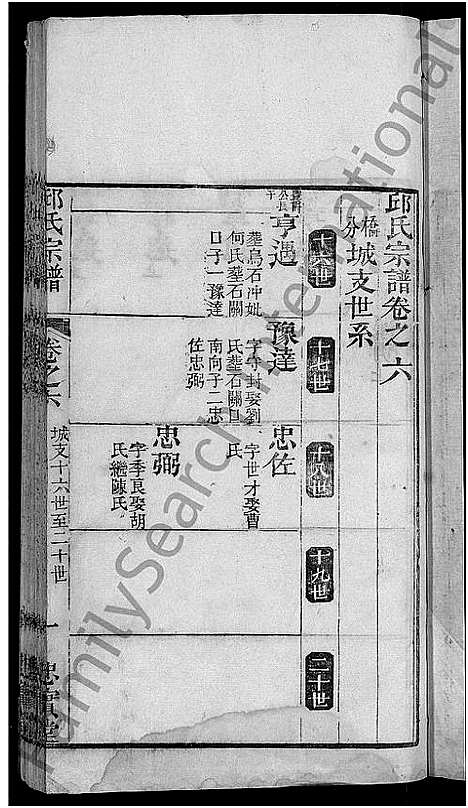 邱氏宗譜卷之六
橋分城支世系
十六世
十七世
十八世
十九世
二十世
公長
子
亨遇
墓烏石沖妣
何氏墓石關
口子一豫達
豫達
字守封娶劉
氏墓石關口
南向子二忠
佐忠弼
忠佐
字世才娶曹
氏
忠弼
字季良娶胡
氏繼陳氏
邱氏宗譜
卷之六
城支十六世至二十世
一
FamilySearch International